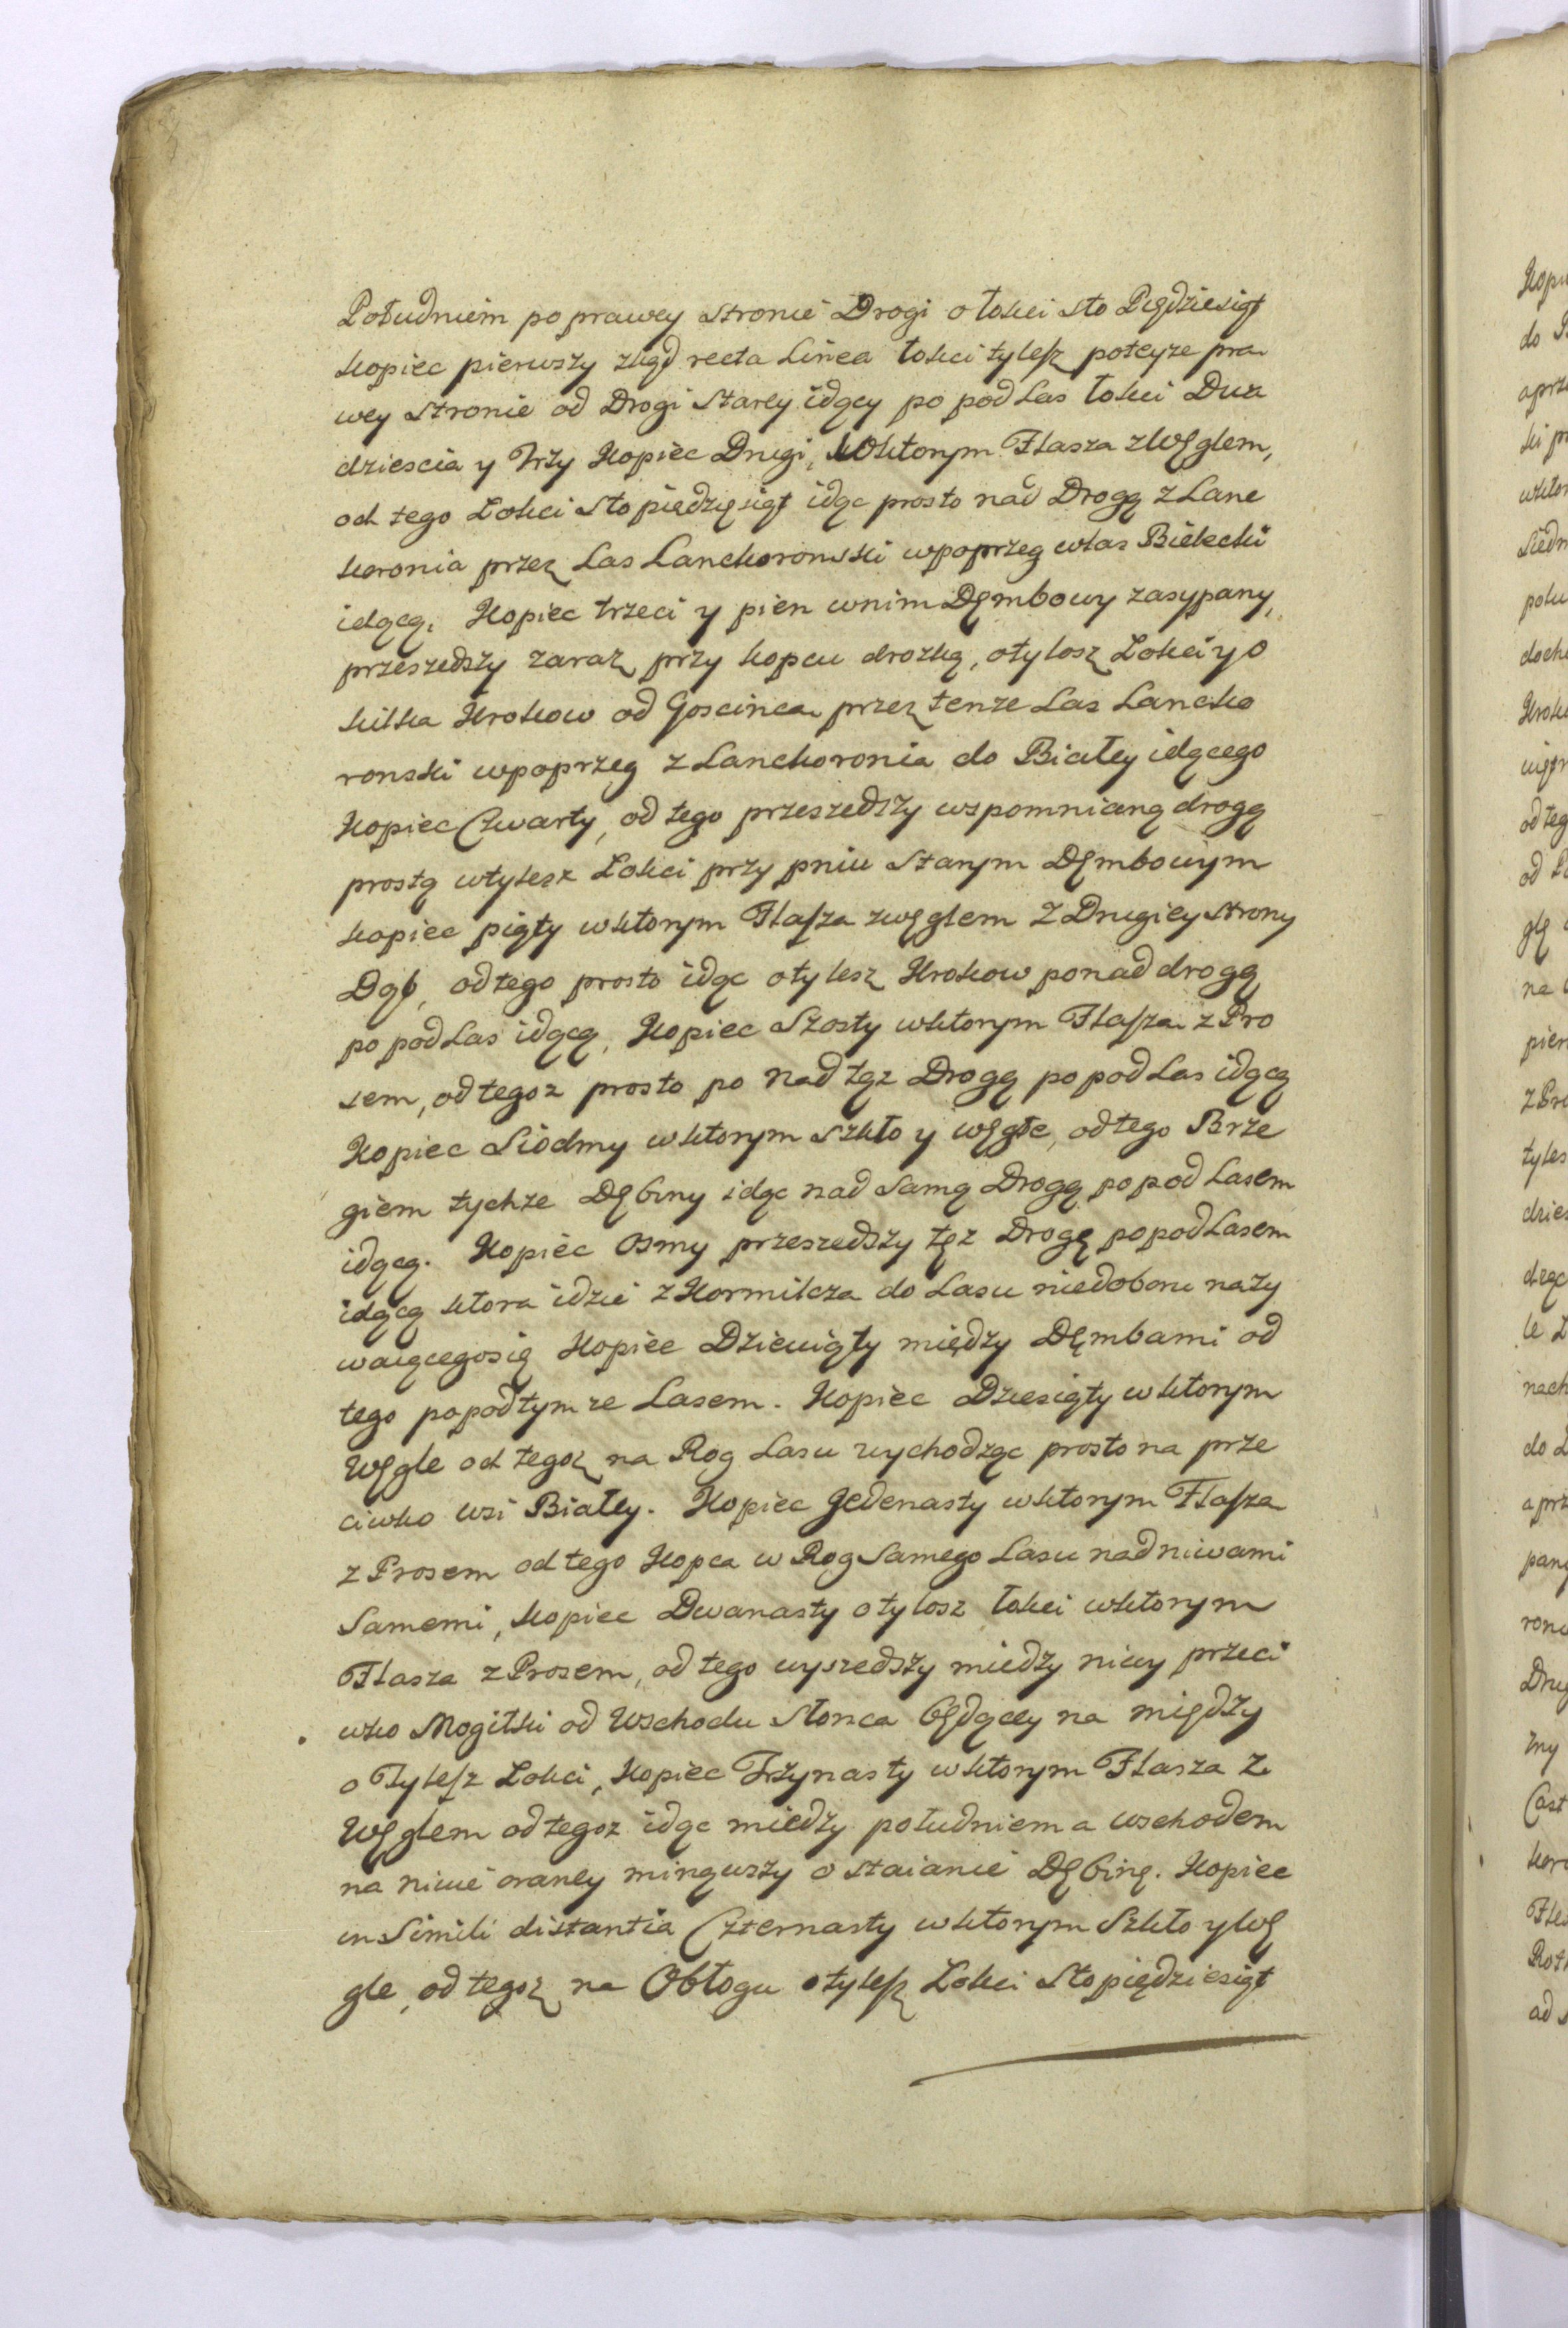 Południem po prawey stronie Drogi o łokci sto Piędziesiąt
kopiec pierwszy zkąd recta Linea łokci tylesz poteyze pra
wey stronie od Drogi Starey idący po pod Las łokci Dwa
dziescia y Trzy Kopiec Drugi, wktorym Flasza zWęglem,
od tego Łokci Sto piędzięsiąt idąc prosto nad Drogą z Lanc
koronia przez Las Lanckoronski wpoprzeg wlas Bielecki
idącą, Kopiec trzeci y pien wnim Dęmbowy zasypany,
przeszedszy zaraz przy kopcu drozkę, otylosz Łokci y o
kilka Krokow od Goscinca przez tenze Las Lancko
ronski wpoprzeg z Lanckoronia do Białey idącego
Kopiec Czwarty, od tego przeszedszy wspomnianą drogę
prostą wtylesz Łokci przy pniu Starym Dęmbowym
kopiec piąty wktorym Flasza zwęglem z Drugiey strony
Dąb, od tego prosto idąc otylesz Krokow ponad drogą
po pod Las idącą, Kopiec Szosty wktorym Flasza z Pro
sem, od tegoz prosto po nad tąz Drogą po pod Las idącą
Kopiec Siodmy wktorym Szkło y węgłe, od tego Brze
giem tychze Dębiny idąc nad Samą Drogą po pod Lasem
idącą. Kopiec Osmy przeszedszy tęz Drogę po pod Lasem
idącą ktora idzie z Kormilcza do Lasu niedoboru nazy
waiącegosię Kopiec Dziewiąty między Dęmbami od
tego popod tymze Lasem. Kopiec Dziesiąty wktorym
Węgle od tegoz na Rog Lasu wychodząc prosto na prze
ciwko wsi Białey. Kopiec Jedenasty wktorym Flasza
z Prosem od tego Kopca w Rog Samego Lasu nad niwami
Samemi, kopiec Dwanasty otylosz łokci wktorym
Flasza z Prosem, od tego wyszedszy miedzy niwy przeci
wko Mogiłki od Wschodu Słonca będącey na między
o Tylesz Łokci, Kopiec Trzynasty wktorym Flasza z
Węglem od tegoz idąc miedzy południem a wschodem
na niwie oraney minąwszy o staianie Dębinę. Kopiec
in Simili distantia Czternasty wktorym Szkło y Wę
gle, od tegoz na Obłogu otylesz Łokci Sto piędziesiąt